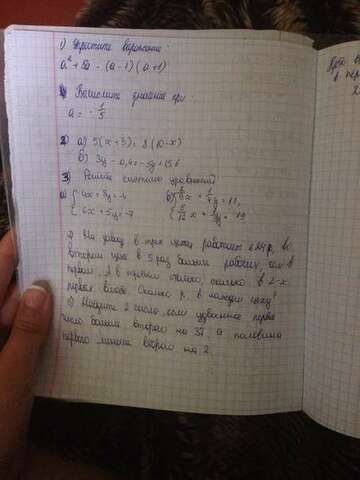 1) Упростите выражение:
a² + 5a - (a-1)(a+1)
Вычислите значение при
a = - 1/5
2) а) 5(x+3) = 8(10-x)
б) 3y - 0,4 = -5y + 15,6
3) Решите систему уравнений
а) { 4x + 3y = -4
{ 6x + 5y = -7
б) x + 1/4 y = 11,
{ 5/12 x + y = 19
На заводе в трех цехах работают 624 р, во
втором цехе в 5 раз больше рабочих, чем в
первом. А в третьем столько, сколько в 2-х
первых вместе. Сколько р. в каждом цеху?
Найдите 2 числа, если удвоенное первое
число больше второго на 37, а половина
первого меньше второго на 2.